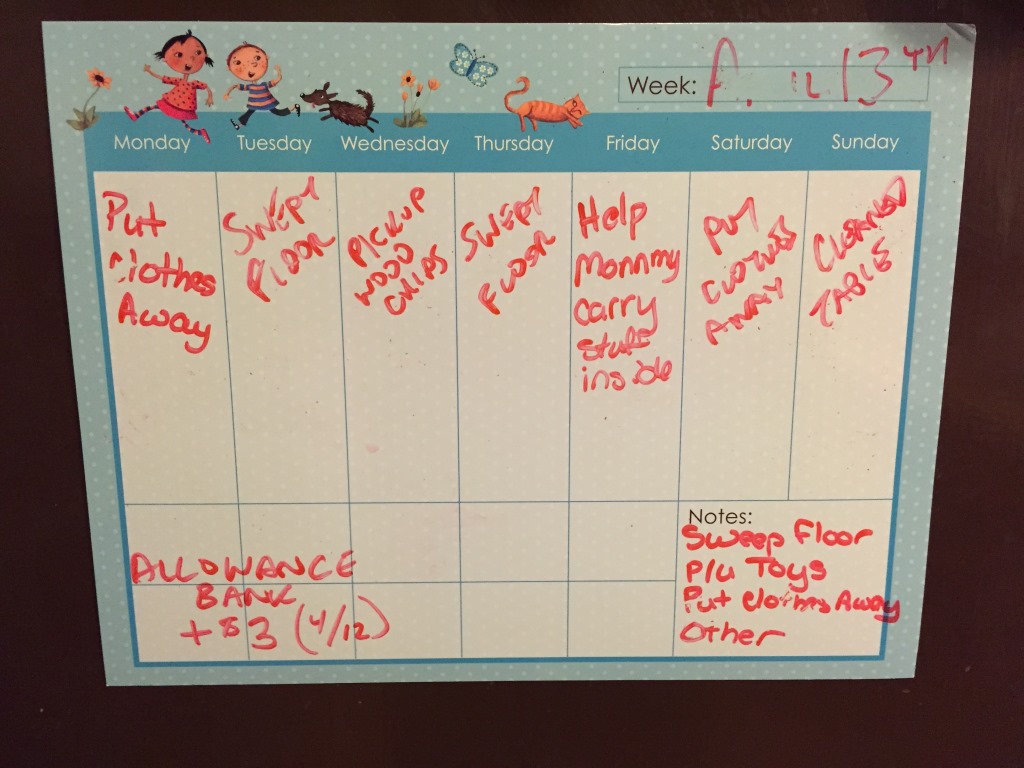 Week: 13TH
Monday Tuesday Wednesday Thursday Friday Saturday Sunday
Put
clothes
Away
SWEPT
FLOOR
PICKUP
WOOD
CHIPS
SWEPT
FLOOR
Help
Mommy
carry
stuff
inside
PUT
CLOTHES
AWAY
CLEANED
TABLE
ALLOWANCE
BANK
+$3 (4/12)
Notes:
Sweep Floor
P/u Toys
Put clothes Away
Other